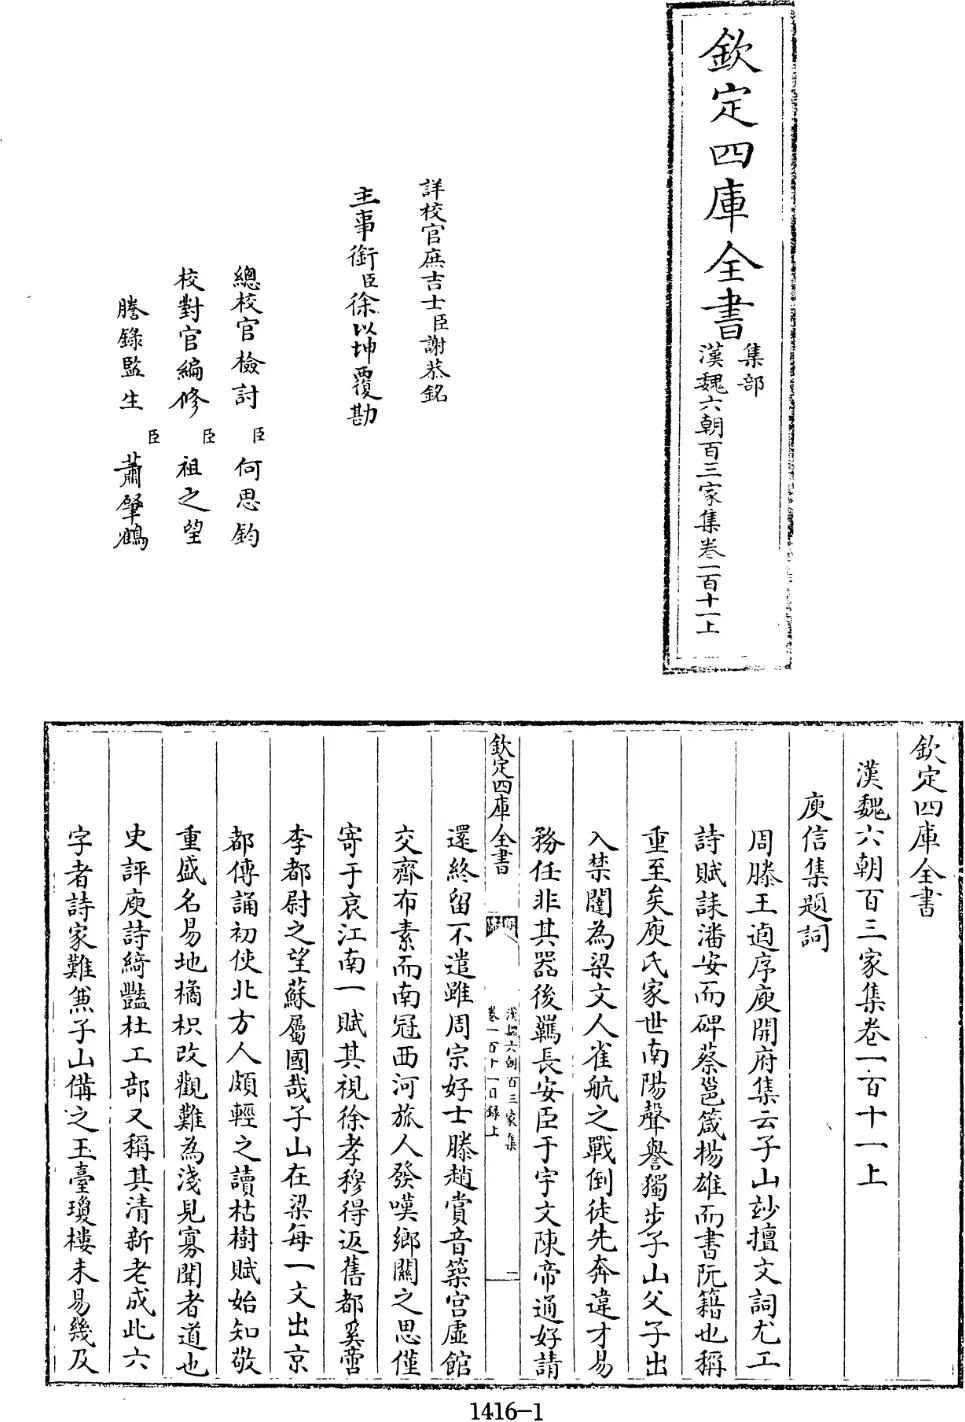 欽定四庫全書
集部
漢魏六朝百三家集卷一百十一上
詳校官庶吉士臣謝恭銘
主事銜臣徐以坤覆勘
總校官檢討臣何思鈞
校對官編修臣祖之望
謄錄監生臣蕭肇鶴
欽定四庫全書
漢魏六朝百三家集卷一百十一上
庾信集題詞
周滕王逌序庾開府集云子山玅擅文詞尤工
詩賦誄潘安而碑蔡邕箴揚雄而書阮籍也稱
重至矣庾氏家世南陽聲譽獨步子山父子出
入禁闥為梁文人雀航之戰倒徒先奔違才易
務任非其器後羈長安臣于宇文陳帝通好請
欽定四庫全書
漢魏六朝百三家集
卷一百十一目録上
一
還終留不遣雖周宗好士滕趙賞音築宫虛館
交齊布素而南冠西河旅人發嘆鄉關之思僅
寄于哀江南一賦其視徐孝穆得返舊都奚啻
李都尉之望蘇屬國哉子山在梁每一文出京
都傳誦初使北方人頗輕之讀枯樹賦始知敬
重盛名易地橘枳改觀難為淺見寡聞者道也
史評庾詩綺豔杜工部又稱其清新老成此六
字者詩家難兼子山備之玉臺瓊樓未易幾及
1416-1